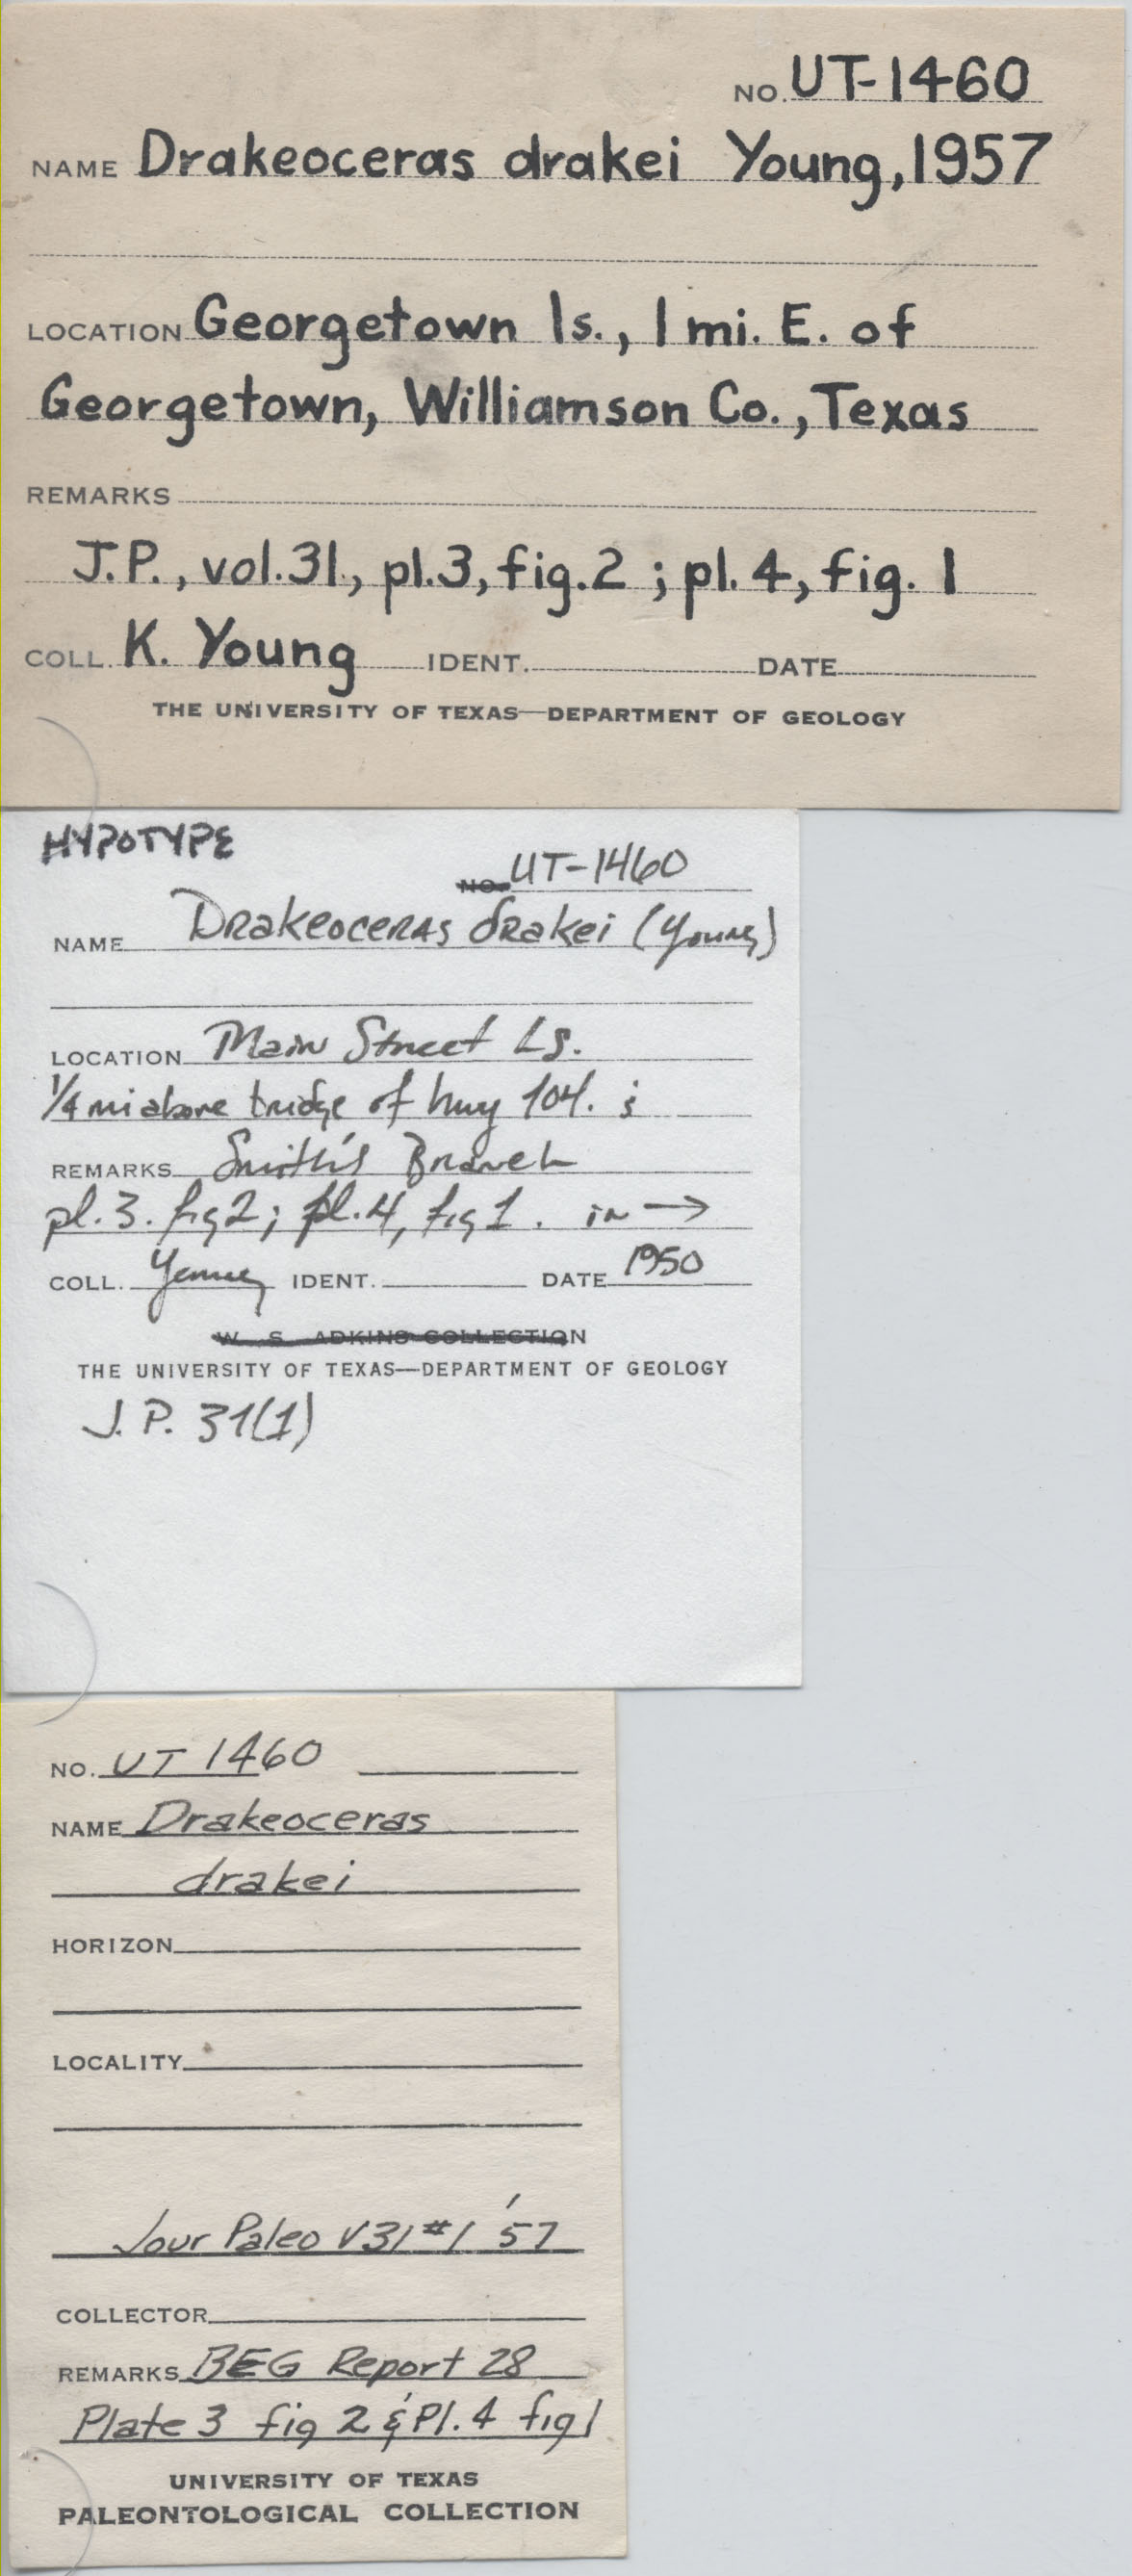 NO. UT-1460
NAME Drakeoceras drakei Young, 1957
LOCATION Georgetown ls., 1 mi. E. of
Georgetown, Williamson Co., Texas
REMARKS
J.P., vol. 31, pl. 3, fig. 2 ; pl. 4, fig. 1
COLL. K. Young IDENT. DATE
THE UNIVERSITY OF TEXAS—DEPARTMENT OF GEOLOGY
HYPOTYPE
NO. UT-1460
NAME Drakeoceras drakei (Young)
LOCATION Main Street Ls.
1/4 mi above bridge of hwy 104. ;
REMARKS Smith's Branch
pl. 3. fig 2; pl. 4, fig 1. in →
COLL. Young IDENT. DATE 1950
W. S. ADKINS COLLECTION
THE UNIVERSITY OF TEXAS—DEPARTMENT OF GEOLOGY
J. P. 31(1)
NO. UT 1460
NAME Drakeoceras
drakei
HORIZON
LOCALITY
Jour Paleo V31 #1 '57
COLLECTOR
REMARKS BEG Report 28
Plate 3 fig 2 & Pl. 4 fig 1
UNIVERSITY OF TEXAS
PALEONTOLOGICAL COLLECTION